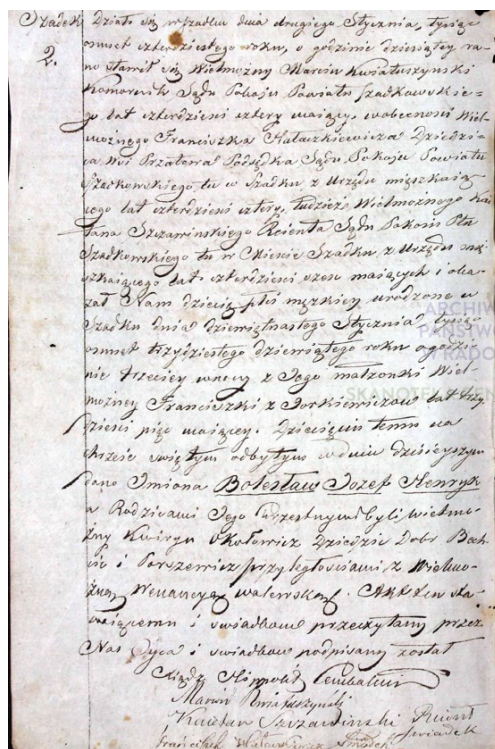 Szadek Działo się w Szadku dnia drugiego Stycznia, tysiąc
2. osmset czterdziestego roku, o godzinie dziesiątey ra-
no stawił się Wielmożny Marcin Kwiatuszynski
Komornik Sądu Pokoju Powiatu Szadkowskie-
go lat czterdzieści cztery maiący, w obecności Wiel-
możnego Franciszka Dziedzi-
ca Wsi Podsędka Sądu Pokoju Powiatu
Szadkowskiego tu w Szadku z Urzędu mięszkaią-
cego lat czterdzieści cztery, tudzież Wielmożnego Kaie-
tana Szczawinskiego Reienta Sądu Pokoiu Ptu
Szadkowskiego tu w Mieście Szadku z Urzędu mię-
szkaiącego lat czterdzieści sześć maiących i oka-
zał Nam dziecię płci męzkiey urodzone w
Szadku dnia dziewiętnastego Stycznia, tysiąc
osmset trzydziestego dziewiątego roku o godzi-
nie trzeciey w nocy z Jego małżonki Wiel-
możney Franciszki z Jorkiewiczow lat trzy-
dzieści pięć maiącey. Dziecięciu temu na
chrzcie świętym odbytym w dniu dzisieyszym
dano Imiona Bolesław Jozef Henryk
a Rodzicami Jego chrzestnymi byli, wielmo-
żny Kwiryn Okołowicz Dziedzic Dobr
i Poryszewicz z przyległościami, z Wielmo-
żną Wenancyą Walewską. Akt ten sta-
waiącemu i świadkom przeczytany przez
Nas Oyca i swiadkow podpisany został
Xiądz Hippolit
Marcin Kwiatuszynski
Kaietan Szczawinski Reient
Świadek
Franciszek
ARCHIW
PAŃSTW
W RADO
SKANOTEKA